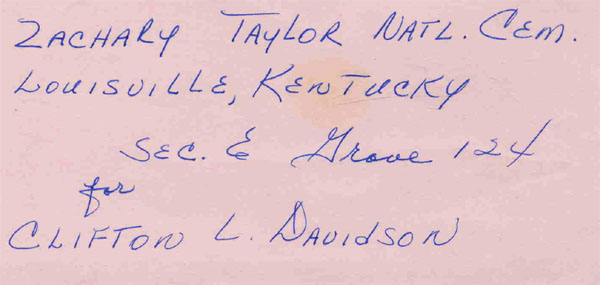 ZACHARY TAYLOR NATL. CEM.
LOUISVILLE, KENTUCKY
SEC. E Grave 124
for
CLIFTON L. DAVIDSON